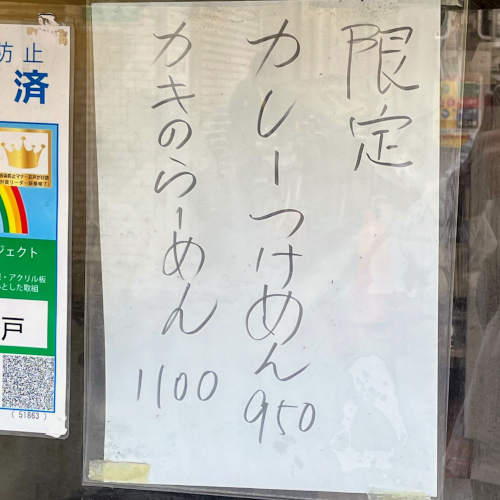 限定
カレーつけめん 950
カキのらーめん 1100
防止
済
ジェクト
・アクリル板
とした取組
戸
(51863)